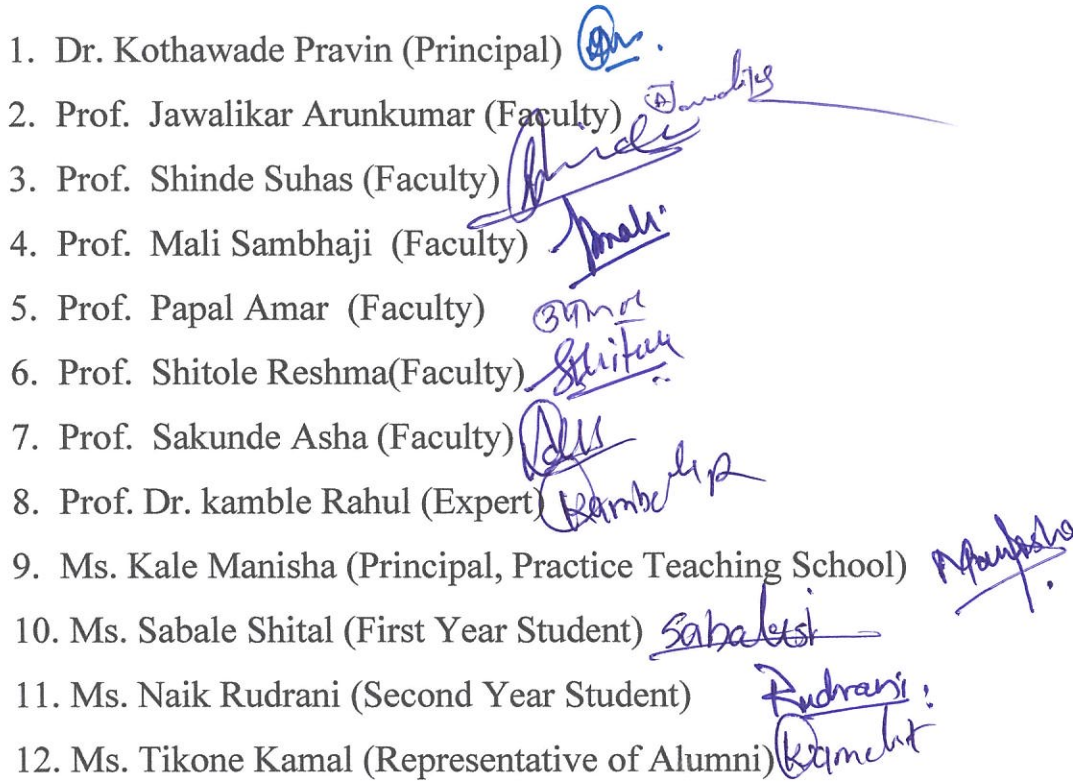 1. Dr. Kothawade Pravin (Principal)
2. Prof. Jawalikar Arunkumar (Faculty)
3. Prof. Shinde Suhas (Faculty) Shinde
4. Prof. Mali Sambhaji (Faculty) Smali
5. Prof. Papal Amar (Faculty)
6. Prof. Shitole Reshma(Faculty)
7. Prof. Sakunde Asha (Faculty)
8. Prof. Dr. kamble Rahul (Expert)
9. Ms. Kale Manisha (Principal, Practice Teaching School)
10. Ms. Sabale Shital (First Year Student)
11. Ms. Naik Rudrani (Second Year Student) Rudrani
12. Ms. Tikone Kamal (Representative of Alumni)